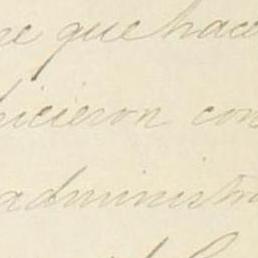 que hace
hicieron con
administr